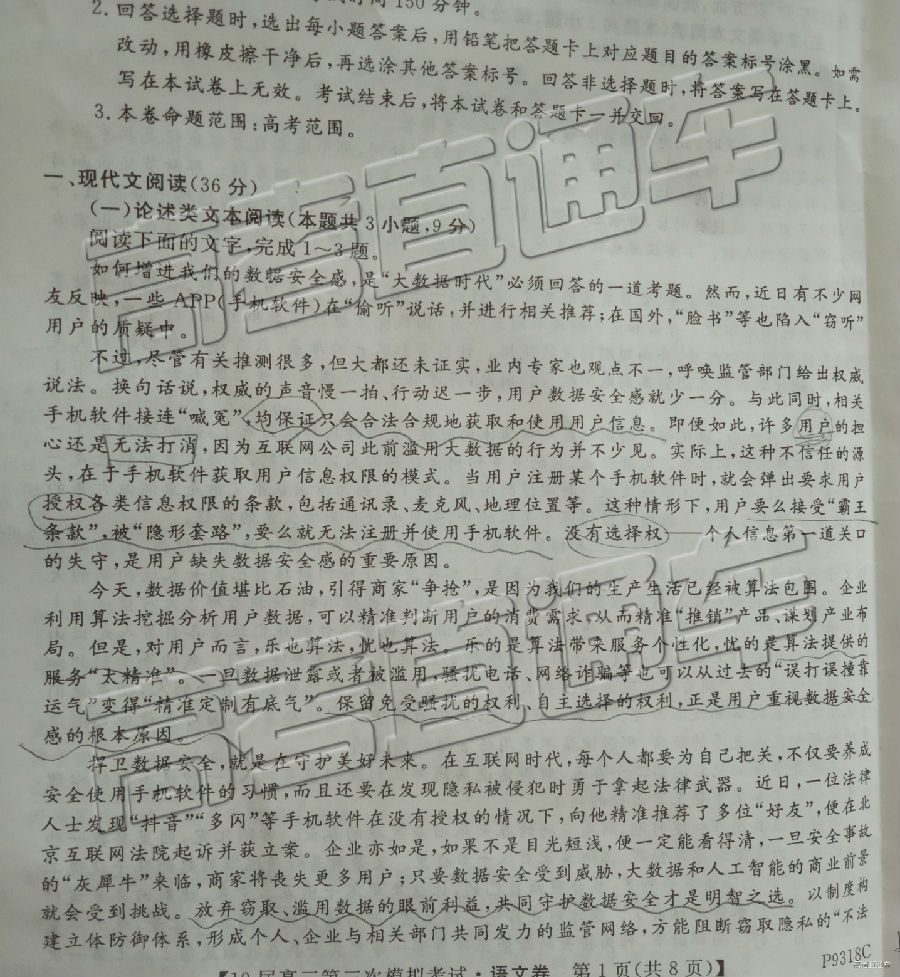 时间150分钟。
2.回答选择题时,选出每小题答案后,用铅笔把答题卡上对应题目的答案标号涂黑。如需
改动,用橡皮擦干净后,再选涂其他答案标号。回答非选择题时,将答案写在答题卡上。
写在本试卷上无效。考试结束后,将本试卷和答题卡一并交回。
3.本卷命题范围:高考范围。
一、现代文阅读(36分)
(一)论述类文本阅读(本题共3小题,9分)
阅读下面的文字,完成1~3题。
如何增进我们的数据安全感,是“大数据时代”必须回答的一道考题。然而,近日有不少网
友反映,一些APP(手机软件)在“偷听”说话,并进行相关推荐;在国外,“脸书”等也陷入“窃听”
用户的质疑中。
不过,尽管有关推测很多,但大都还未证实,业内专家也观点不一,呼唤监管部门给出权威
说法。换句话说,权威的声音慢一拍、行动迟一步,用户数据安全感就少一分。与此同时,相关
手机软件接连“喊冤”,均保证只会合法合规地获取和使用用户信息。即便如此,许多用户的担
心还是无法打消,因为互联网公司此前滥用大数据的行为并不少见。实际上,这种不信任的源
头,在于手机软件获取用户信息权限的模式。当用户注册某个手机软件时,就会弹出要求用户
授权各类信息权限的条款,包括通讯录、麦克风、地理位置等。这种情形下,用户要么接受“霸王
条款”,被“隐形套路”,要么就无法注册并使用手机软件。没有选择权——个人信息第一道关口
的失守,是用户缺失数据安全感的重要原因。
今天,数据价值堪比石油,引得商家“争抢”,是因为我们的生产生活已经被算法包围。企业
利用算法挖掘分析用户数据,可以精准判断用户的消费需求,从而精准“推销”产品、谋划产业布
局。但是,对用户而言,乐也算法,忧也算法。乐的是算法带来服务个性化,忧的是算法提供的
服务“太精准”。一旦数据泄露或者被滥用,骚扰电话、网络诈骗等也可以从过去的“误打误撞靠
运气”变得“精准定制有底气”。保留免受骚扰的权利、自主选择的权利,正是用户重视数据安全
感的根本原因。
捍卫数据安全,就是在守护美好未来。在互联网时代,每个人都要为自己把关,不仅要养成
安全使用手机软件的习惯,而且还要在发现隐私被侵犯时勇于拿起法律武器。近日,一位法律
人士发现“抖音”“多闪”等手机软件在没有授权的情况下,向他精准推荐了多位“好友”,便在北
京互联网法院起诉并获立案。企业亦如是,如果不是目光短浅,便一定能看得清,一旦安全事故
的“灰犀牛”来临,商家将丧失更多用户;只要数据安全受到威胁,大数据和人工智能的商业前景
就会受到挑战。放弃窃取、滥用数据的眼前利益,共同守护数据安全才是明智之选。以制度构
建立体防御体系,形成个人、企业与相关部门共同发力的监管网络,方能阻断窃取隐私的“不法
【19届高三第二次模拟考试·语文卷 第1页(共8页)】
P9318C
高考直通车
高考直通车